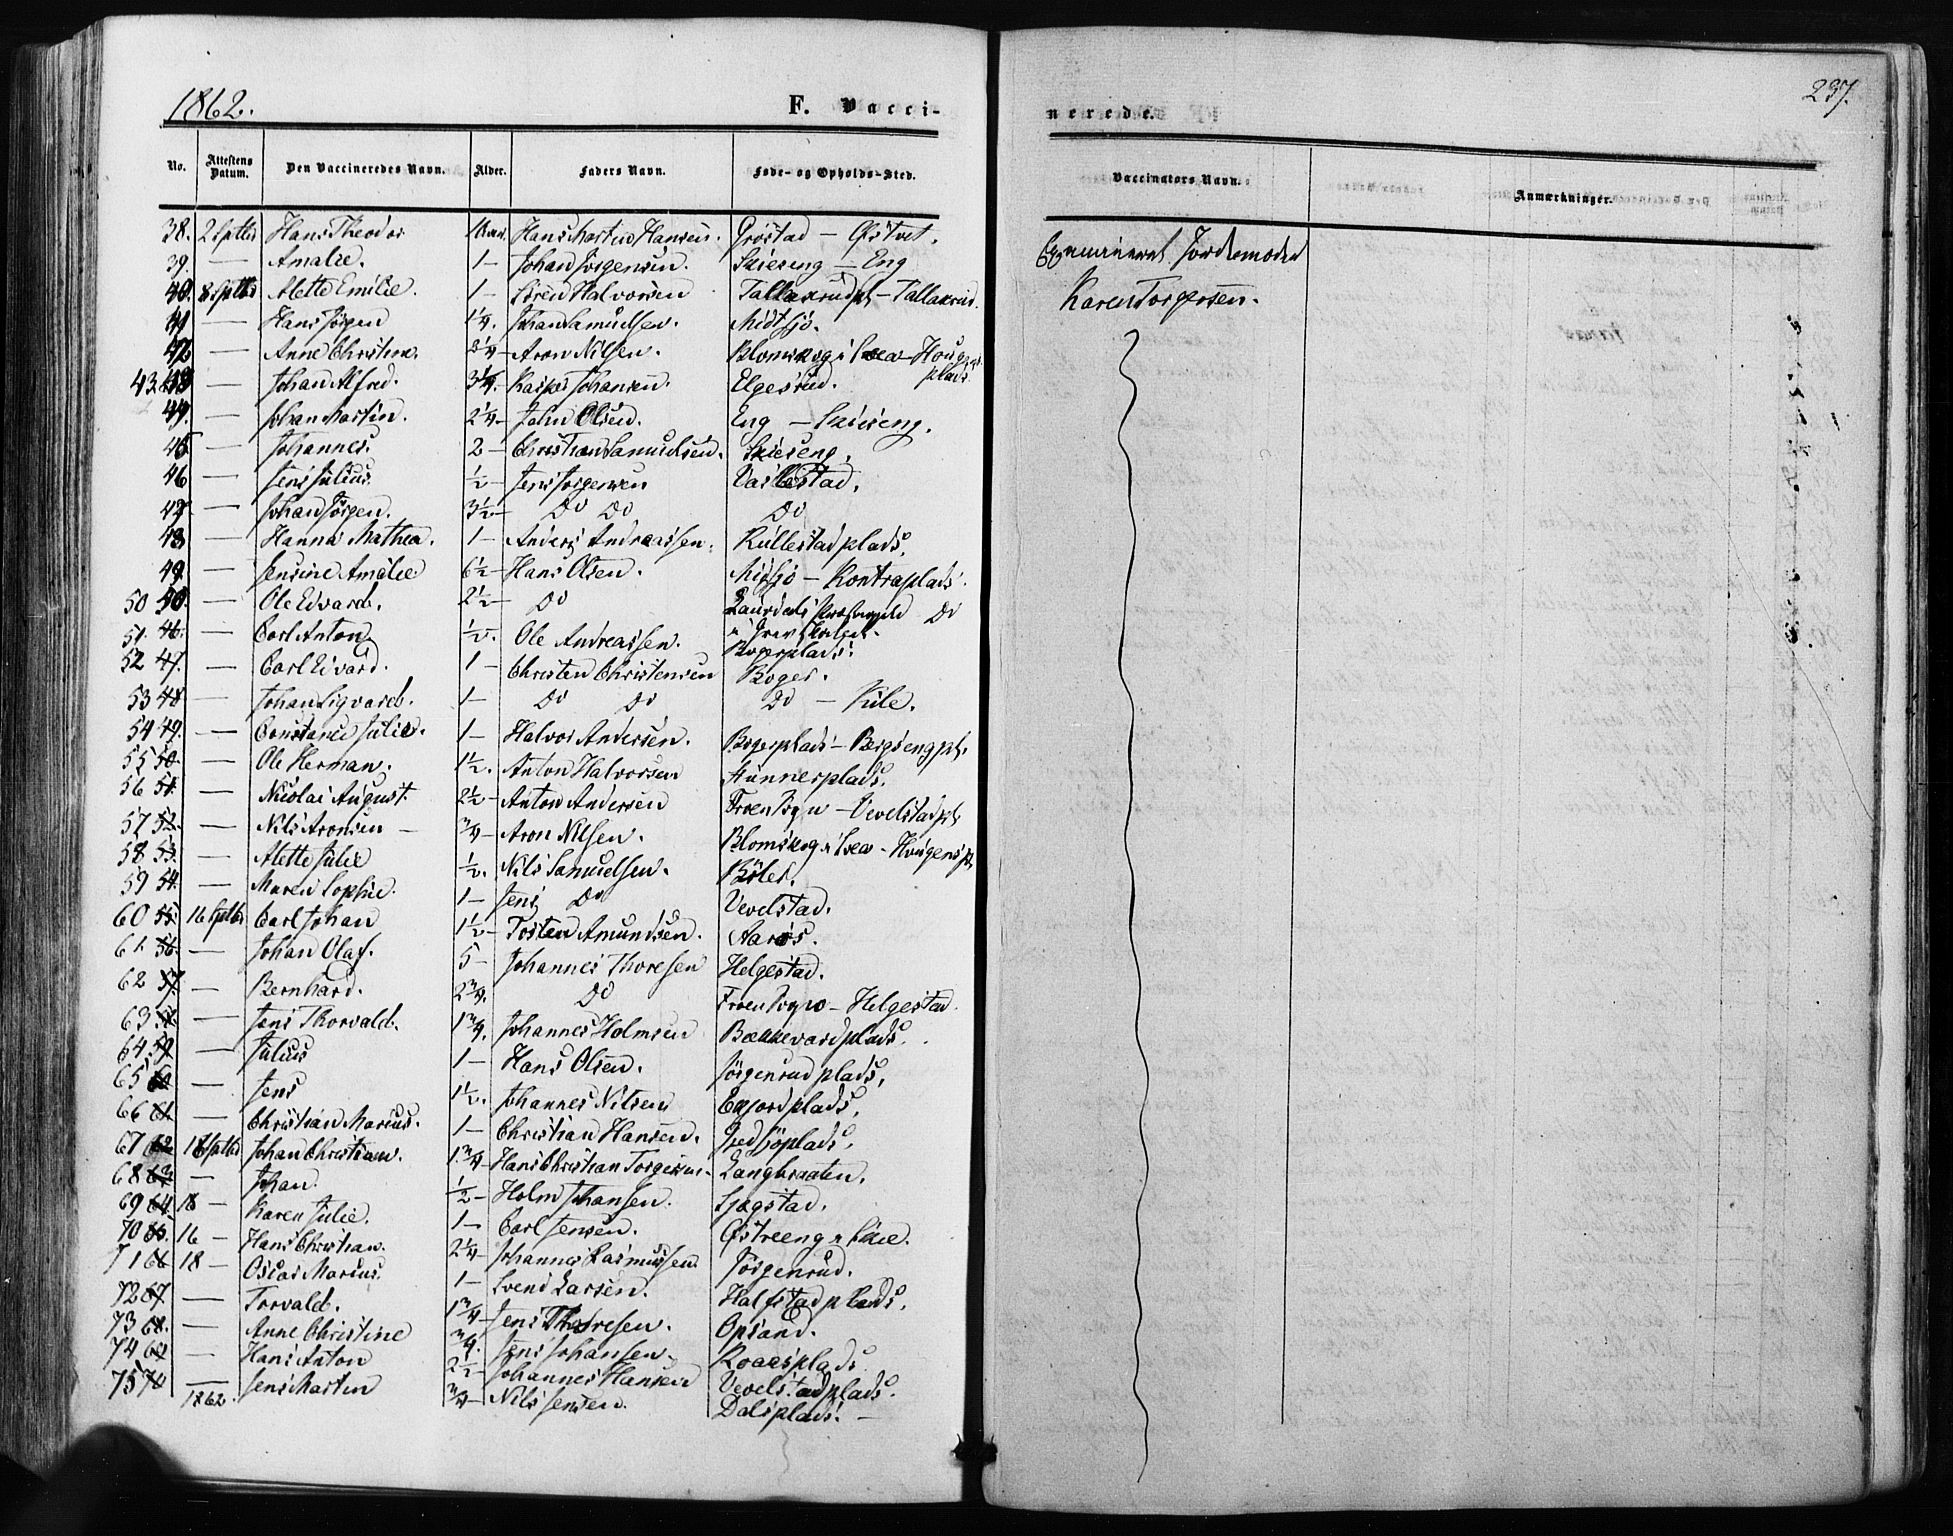 1862. F. Vacci-
nerede. 237.
No. Attestens Datum. Den Vaccineredes Navn. Alder. Faders Navn. Føde- og Opholds-Sted.
Vaccinators Navn. Anmærkninger.
38. 2 Septbr Hans Theodor Hans Martin Hansen. Grøstad - Østvet.
39. — Amalie. 1 - Johan Jørgensen. Skiereng - Eng
40. 8 Septbr Alette Emilie. 1 - Søren Halvorsen Tallaxrudpl - Tallaxrud.
41 — Hans Jørgen 1 1/4. Johan Samuelsen. Midtsjø.
42 — Anne Christine. Aron Nilsen. Blomskog i - Hougens
43 43 — Johan Alfred. 3 1/4. Kasper Johansen. Elgesrud. plads
44. — Johan Martin. 2 1/4 - John Olsen. Eng - Skiereng.
45 — Johannes. 2 - Christian Samuelsen. Skiereng.
46 — Jens Julius. 1/2 - Jens Jorgensen Vaslestad.
47 — Johan Jørgen. 3 1/2 - Do Do Do
48 — Hanna Mathea. 1 - Anders Andreassen. Kullestadplads.
49. — Jensine Amalie 6 1/2 - Hans Olsen. Midsjø - Kontraplads.
50 50. — Ole Edvard. 2 1/2 - Do Laurdals Præstegjeld Do
51. 46. — Carl Anton 1/2. Ole Andreassen. Bogerplads.
52 47. — Carl Edvard. 1 - Christen Christensen Boger.
53 48 — Johan Sigvard. 1 - Do Do Do - Kile.
54 49. — Constance Julie. 1 - Halvor Andersen. Bogerplads - Bergsengpl.
55 50. — Ole Herman. 1 1/2. Anton Halvorsen Hunnerplads.
56 51. — Nicolai August. 2 1/2 - Anton Andersen Froen Sogn - Vevelstadpl.
57 52. — Nils Aronsen - 3/4 - Aron Nilsen. Blomskog i - Hougenspl
58 53. — Alette Julie 1/2. Nils Samuelsen. Bøler.
59 54. — Maren Sophie. 1 - Jens Do Vevelstad.
60 55. 16 Septbr Carl Johan 1 1/2 - Tosten Amundsen. Aarøs.
61. 56. — Johan Olaf. 5 - Johannes Thoresen Helgestad.
62 57. — Bernhard. 2 3/4. Do Froen Sogn - Helgestad.
63 58 — Jens Thorvald. 1 3/4. Johannes Holmsen Bækkevardplads.
64. 59 — Julius 1 - Hans Olsen. Jørgenrud plads.
65 60 — Jens 1 1/2. Johannes Nilsen Exjordplads.
66 61. — Christian Marius. 1 - Christian Hansen. Gjedsjøplads.
67 62 18 Septbr Johan Christian. 1 3/4 - Hans Christian Torgersen. Langbraaten.
68 63 — Johan 1/2 - Holm Johansen. Sjøgstad.
69 64. 18 - Karen Julie. 1 - Carl Jensen. Østreeng i Skie.
70 65. 16 - Hans Christian. 2 1/4 - Johannes Rasmussen Jørgenrud.
71 66 18 - Oscar Marius. 1 - Svend Larsen. Halfstadplads.
72 67 — Torvald. 1 3/4 - Jens Thoresen. Opsand.
73 68. — Anne Christine 3/4. Jens Johansen. Roaasplads
74 69 — Hans Anton 2 1/2 - Johannes Hansen Vevelstadplads.
75 70 — Jens Martin 3/4 - Nils Jensen. Dalsplads. -
1862.
Examineret Jordemoder
Karen Torgersen.